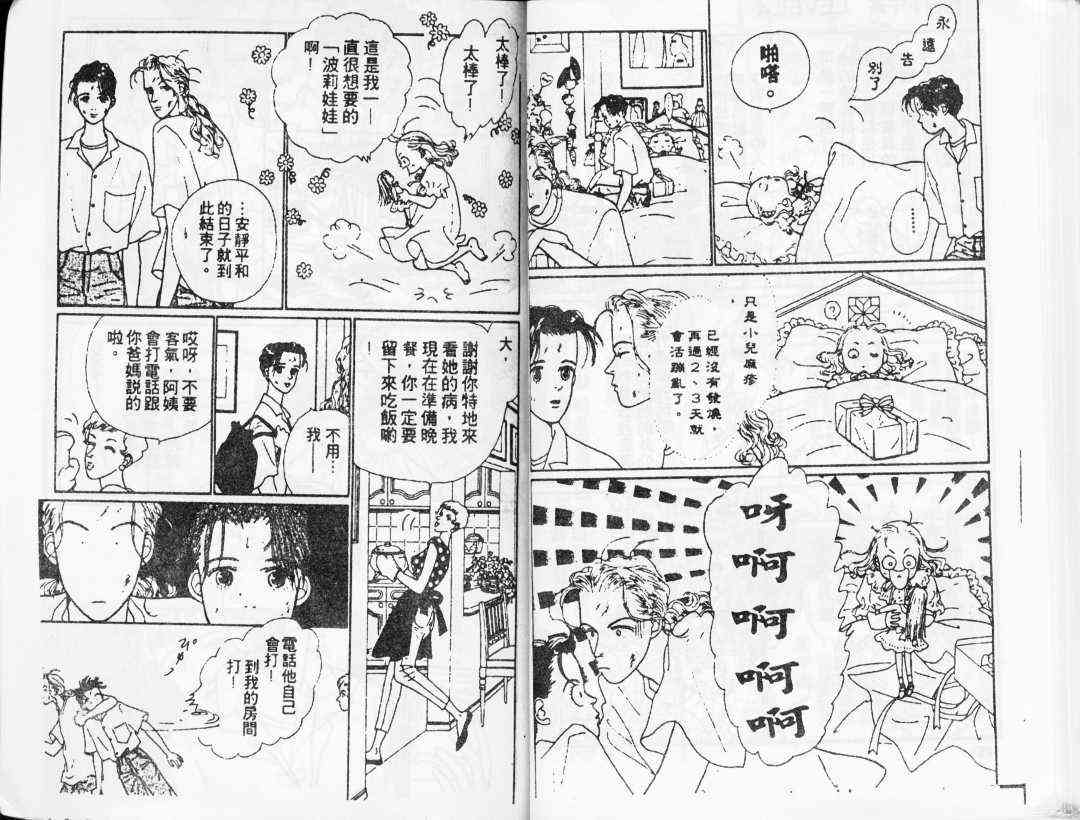 永遠
告
別了
啪嗒。
⋯⋯
?
只是小兒麻疹
，
已經沒有發燒，
再過2、3天就
會活蹦亂了。
呀
啊
啊
啊
啊
太棒了！
太棒了！
這是我一
直很想要的
「波莉娃娃」
啊！
…安靜平和
的日子就到
此結束了。
大，
謝謝你特地來
看她的病，我
現在在準備晚
餐，你一定要
留下來吃飯喲
！
不用…
我——
哎呀，不要
客氣，阿姨
會打電話跟
你爸媽說的
啦。
電話他自己
會打！
到我的房間
打！